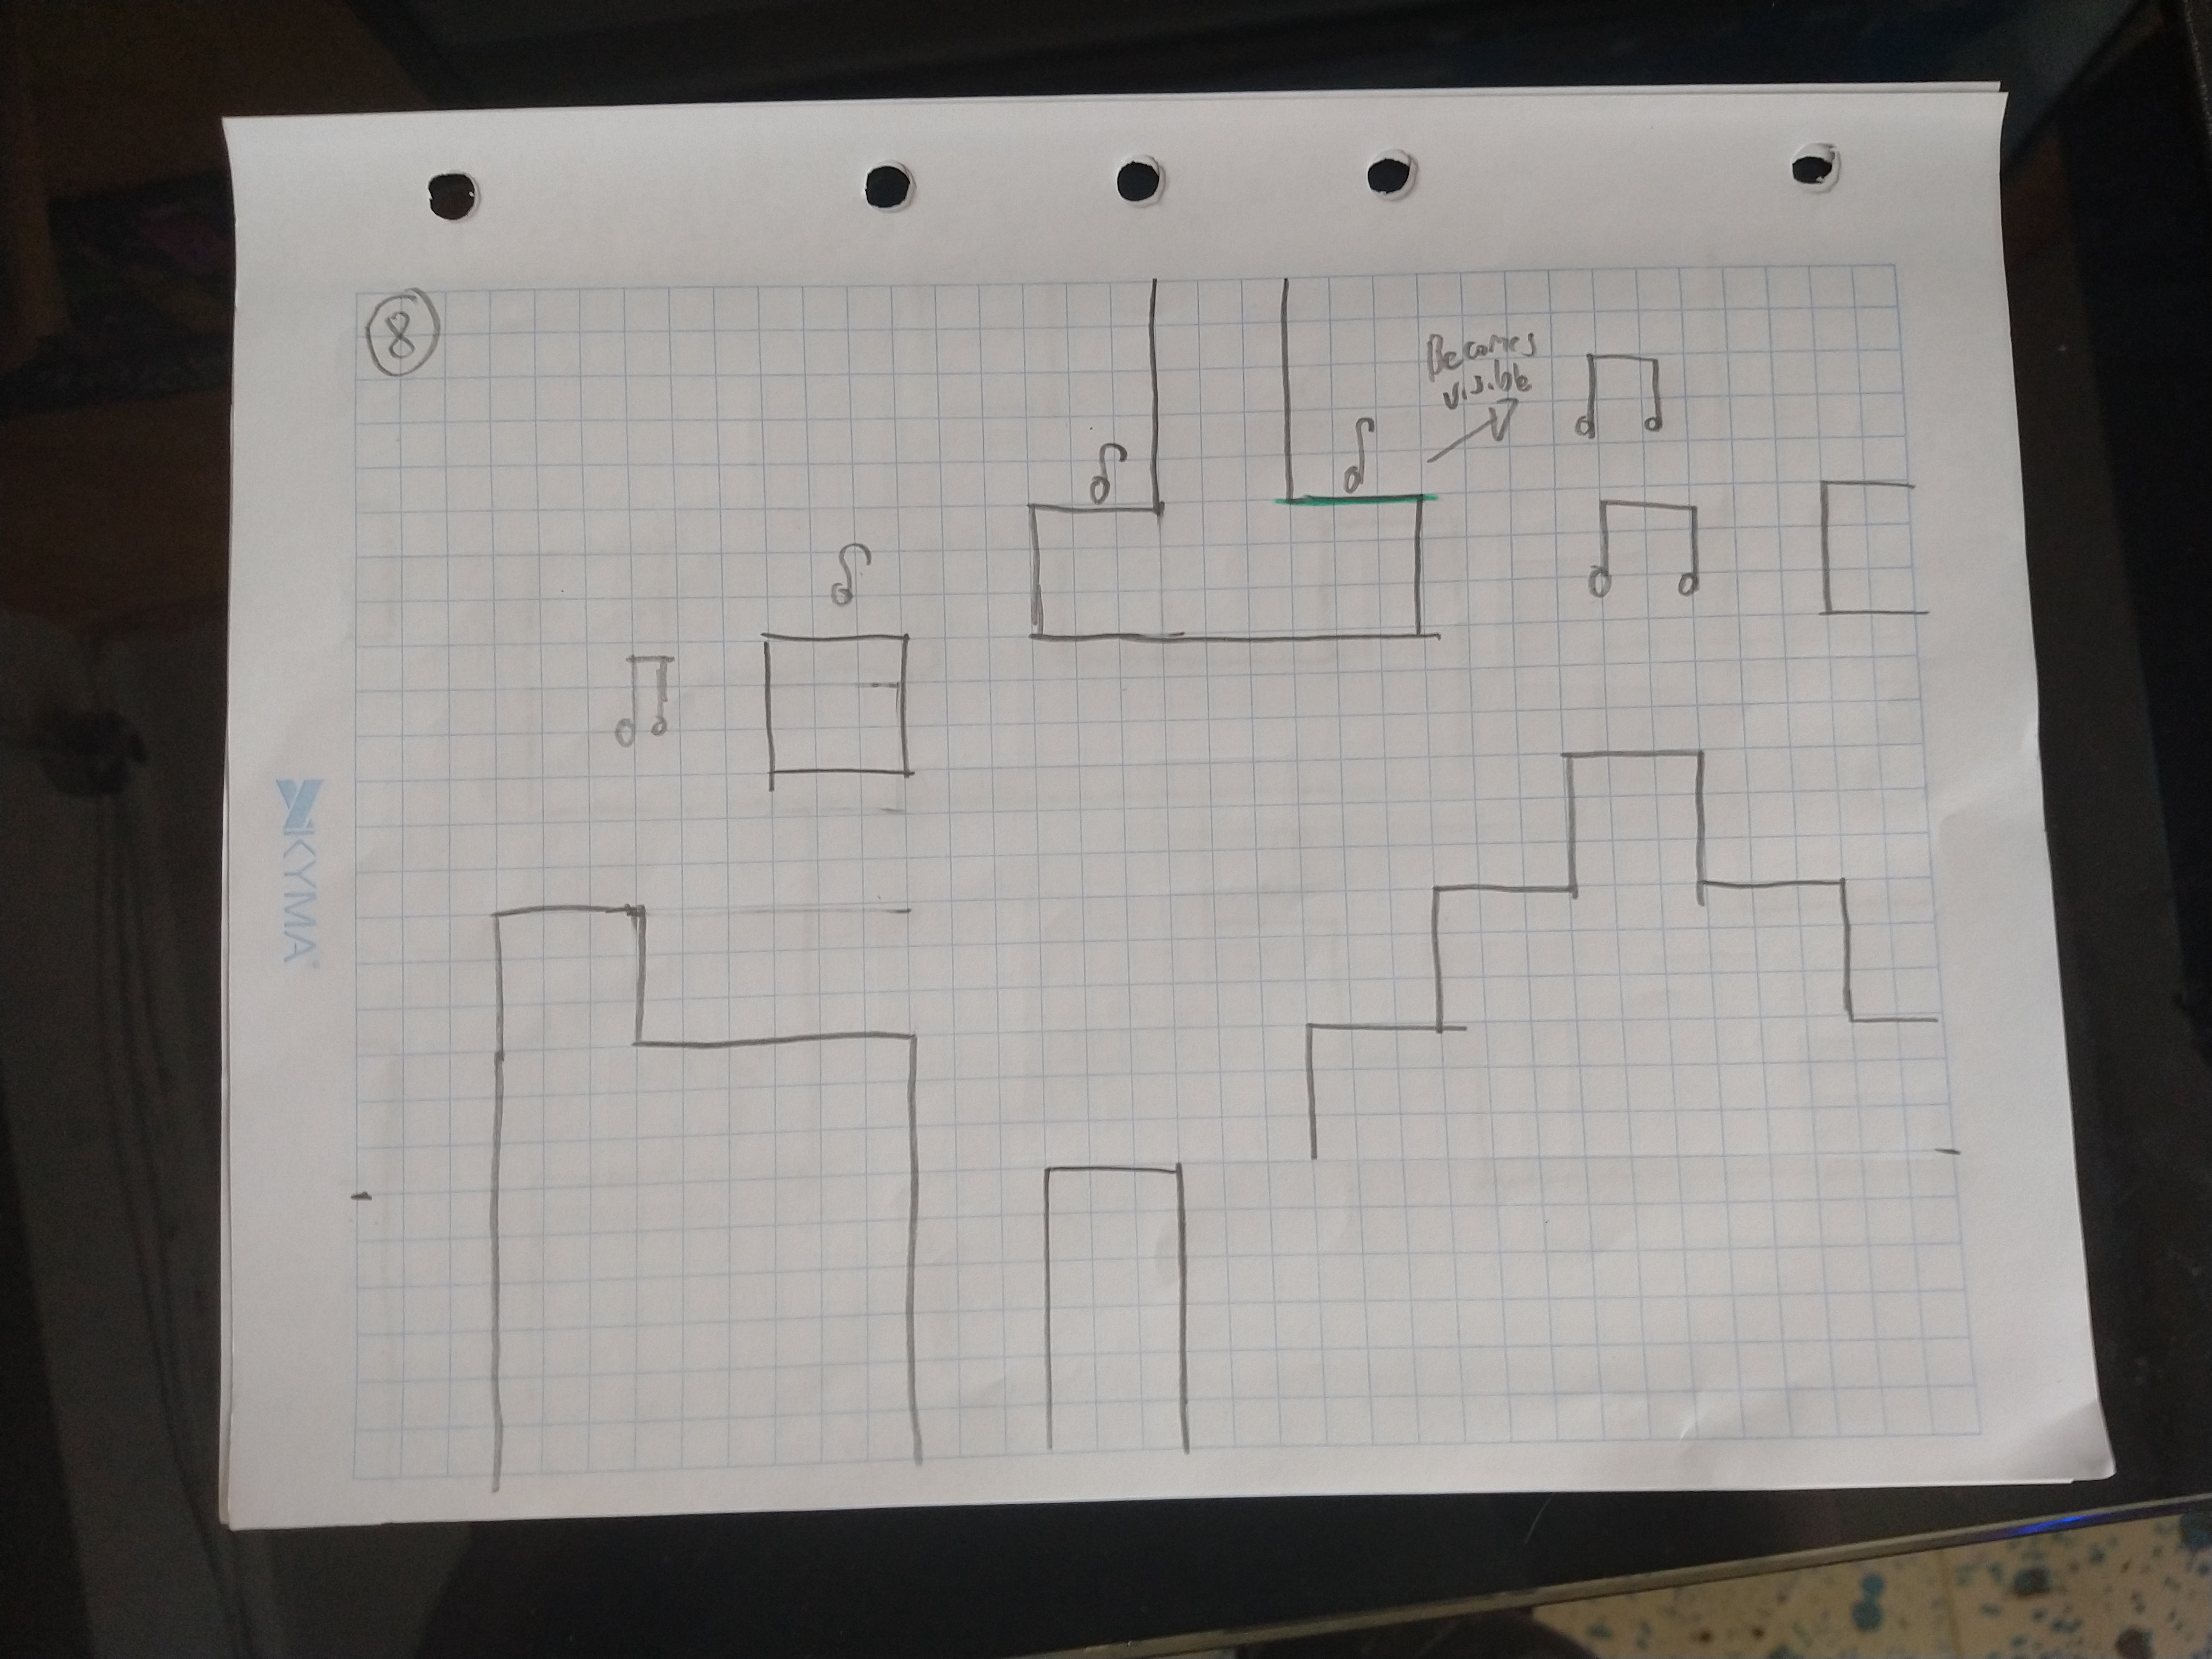 8
Becomes
visible
KYMA